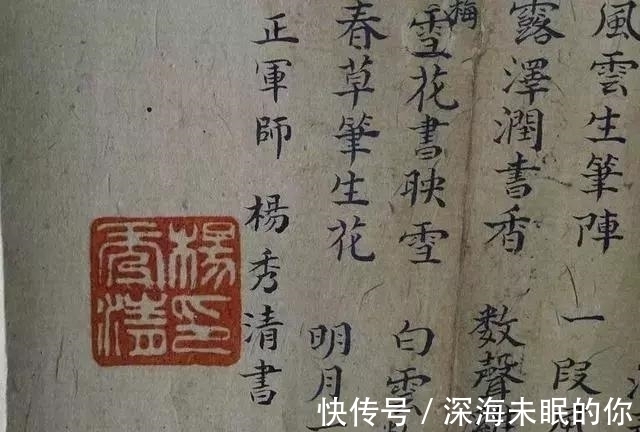 風雲生筆陣 一段
露澤潤書香 數聲
梅
雪花書映雪 白雲
春草筆生花 明月
正軍師 楊秀清書
楊印
秀清
快传号 / 深海未眠的你